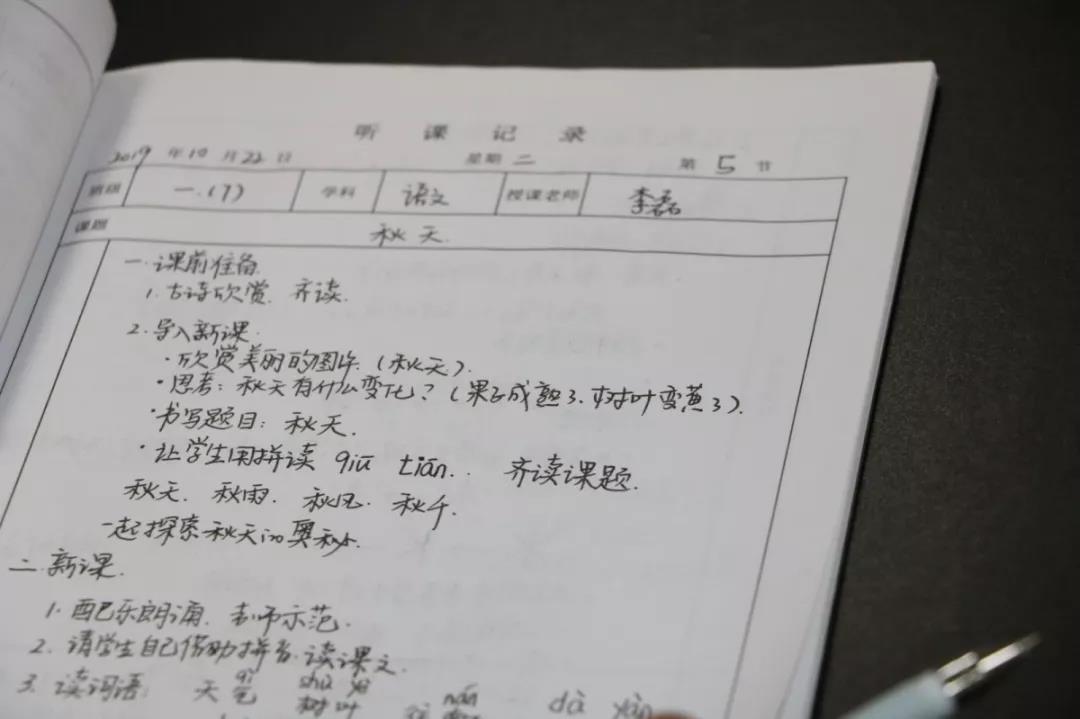 听课记录
2019年10月22日 星期二 第5节
班级 一.(7) 学科 语文 授课老师 李磊
课题 秋天.
一.课前准备.
1.古诗欣赏. 齐读.
2.导入新课.
·欣赏美丽的图片.(秋天).
·思考:秋天有什么变化?(果子成熟了.树叶变黄了).
·书写题目:秋天.
·让学生用拼读 qiū tiān.. 齐读课题.
秋天. 秋雨. 秋风. 秋千.
一起探索秋天的奥秘.
二.新课.
1.配乐朗诵. 老师示范.
2.请学生自己借助拼音.读课文.
qì shù yè nán dà yàn
3.读词语: 天气 树叶 往